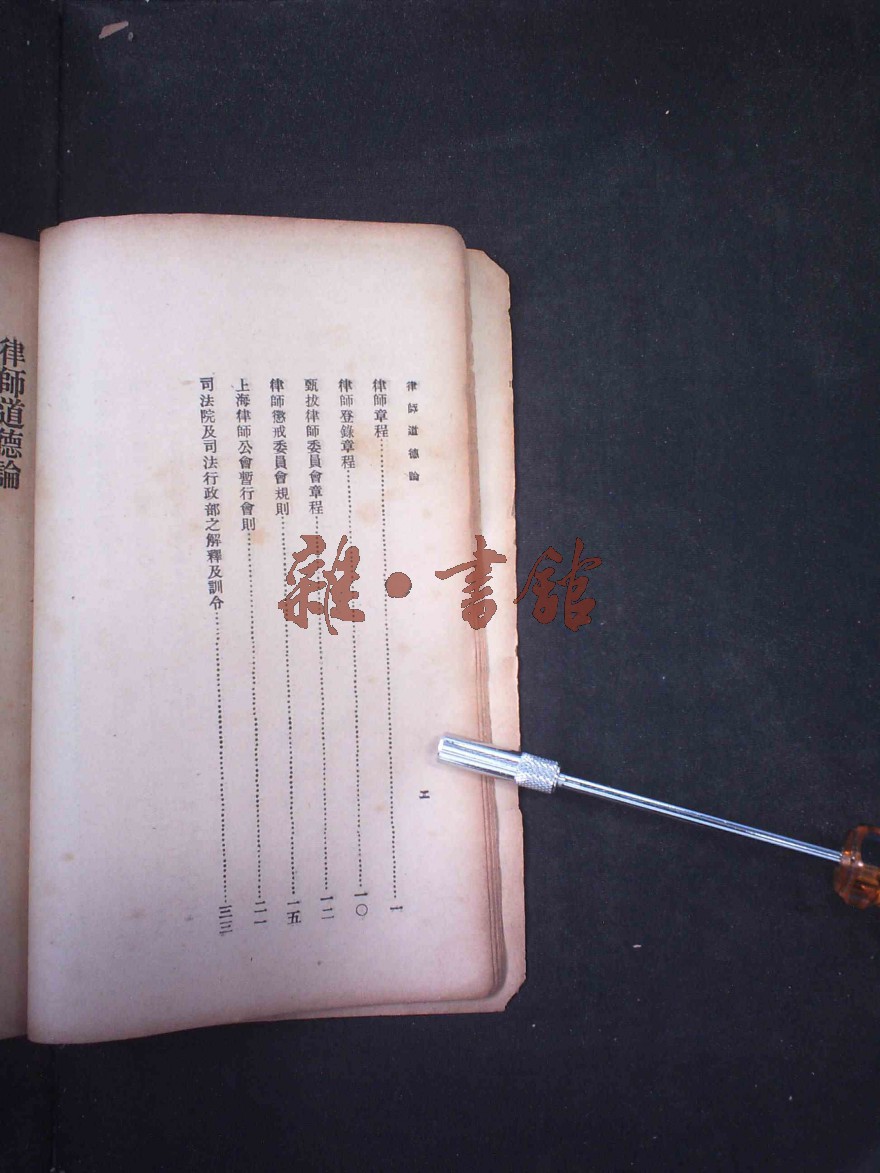 律師道德論
律師章程……一
律師登錄章程……一〇
甄拔律師委員會章程……一二
律師懲戒委員會規則……一五
上海律師公會暫行會則……二一
司法院及司法行政部之解釋及訓令……三三
律師道德論
雜·書館